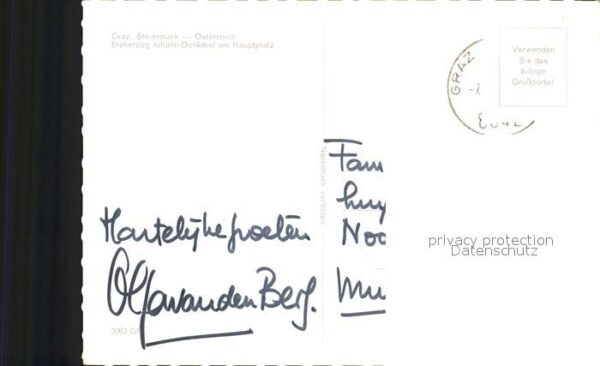 Graz, Steiermark — Österreich
Erzherzog Johann-Denkmal am Hauptplatz
Verwenden
Sie das
billige
Grußporto!
GRAZ
Nachdruck verboten
Fam
Hartelijke groeten
Olga van den Berg.
Noo
privacy protection
Datenschutz
3063 G